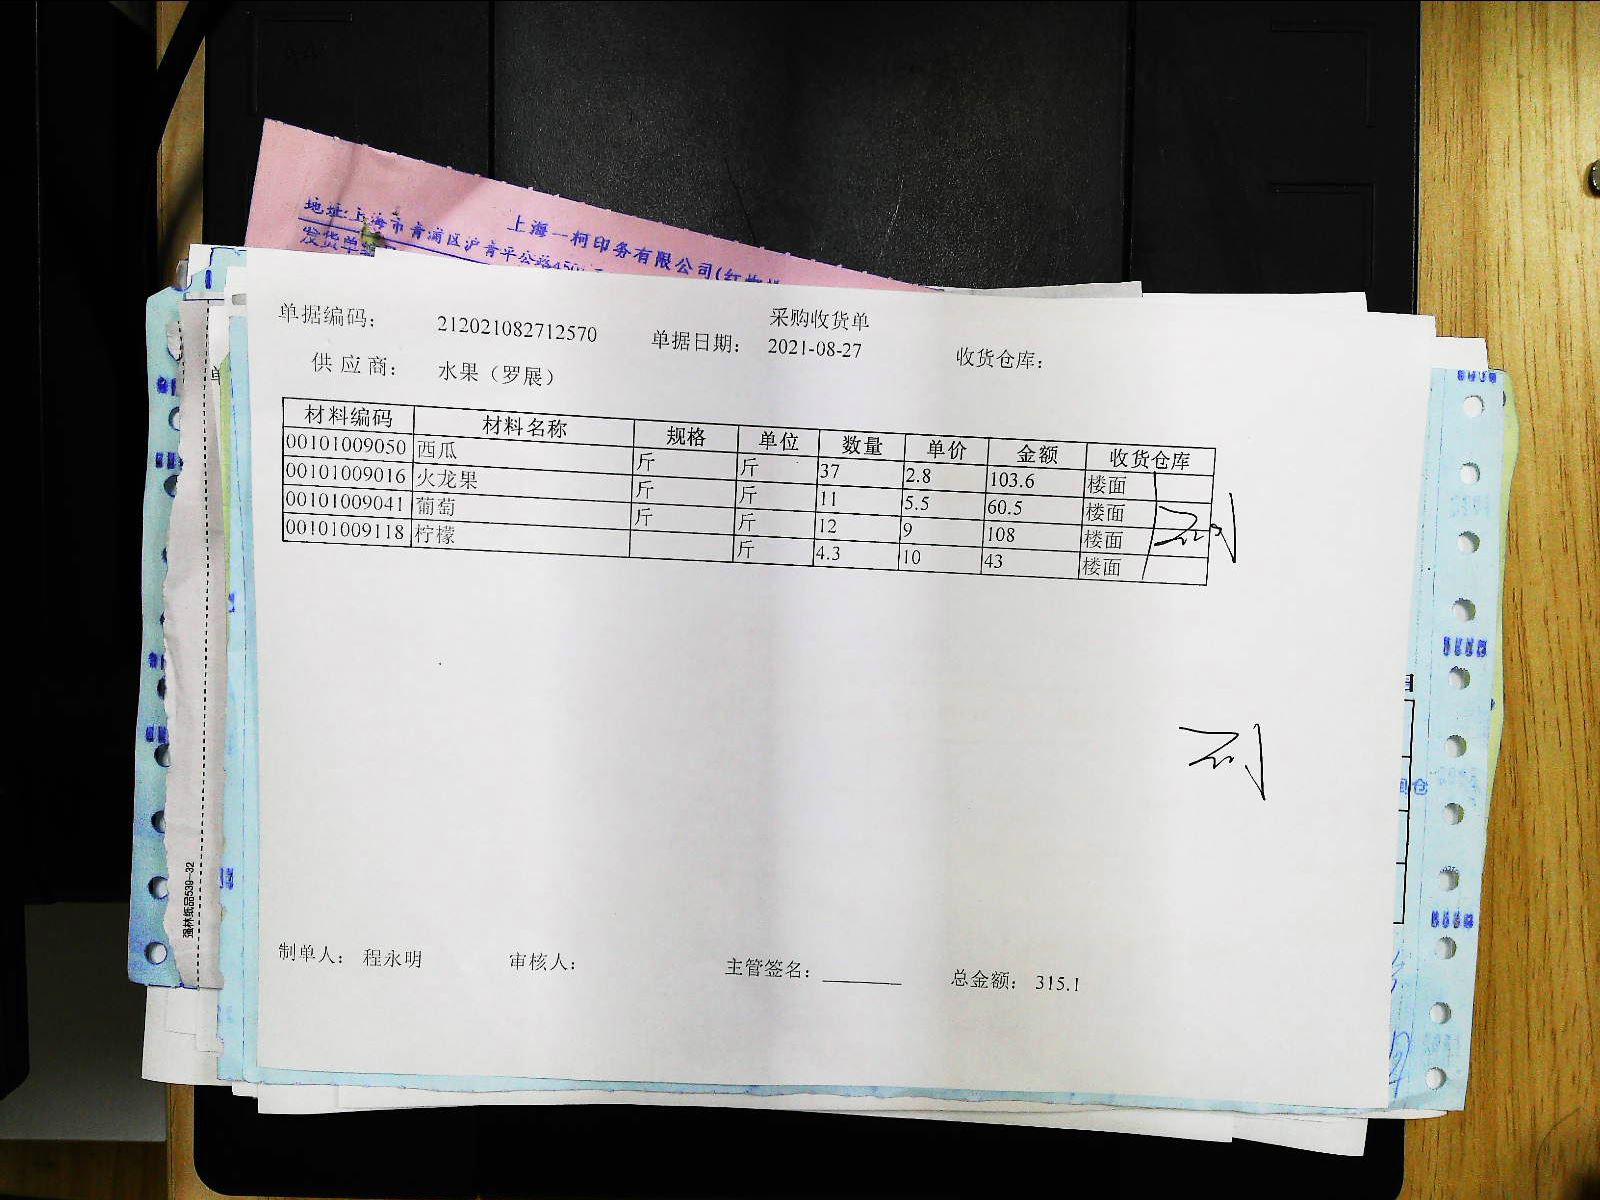 上海一柯印务有限公司(红
地址:上海市青浦区沪青平公路450
发货单
采购收货单
单据编码: 212021082712570 单据日期: 2021-08-27 收货仓库:
供应商: 水果(罗展)
材料编码 材料名称 规格 单位 数量 单价 金额 收货仓库
00101009050 西瓜 斤 斤 37 2.8 103.6 楼面
00101009016 火龙果 斤 斤 11 5.5 60.5 楼面
00101009041 葡萄 斤 斤 12 9 108 楼面
00101009118 柠檬 斤 4.3 10 43 楼面
制单人: 程永明 审核人: 主管签名: 总金额: 315.1
强林纸品539-32